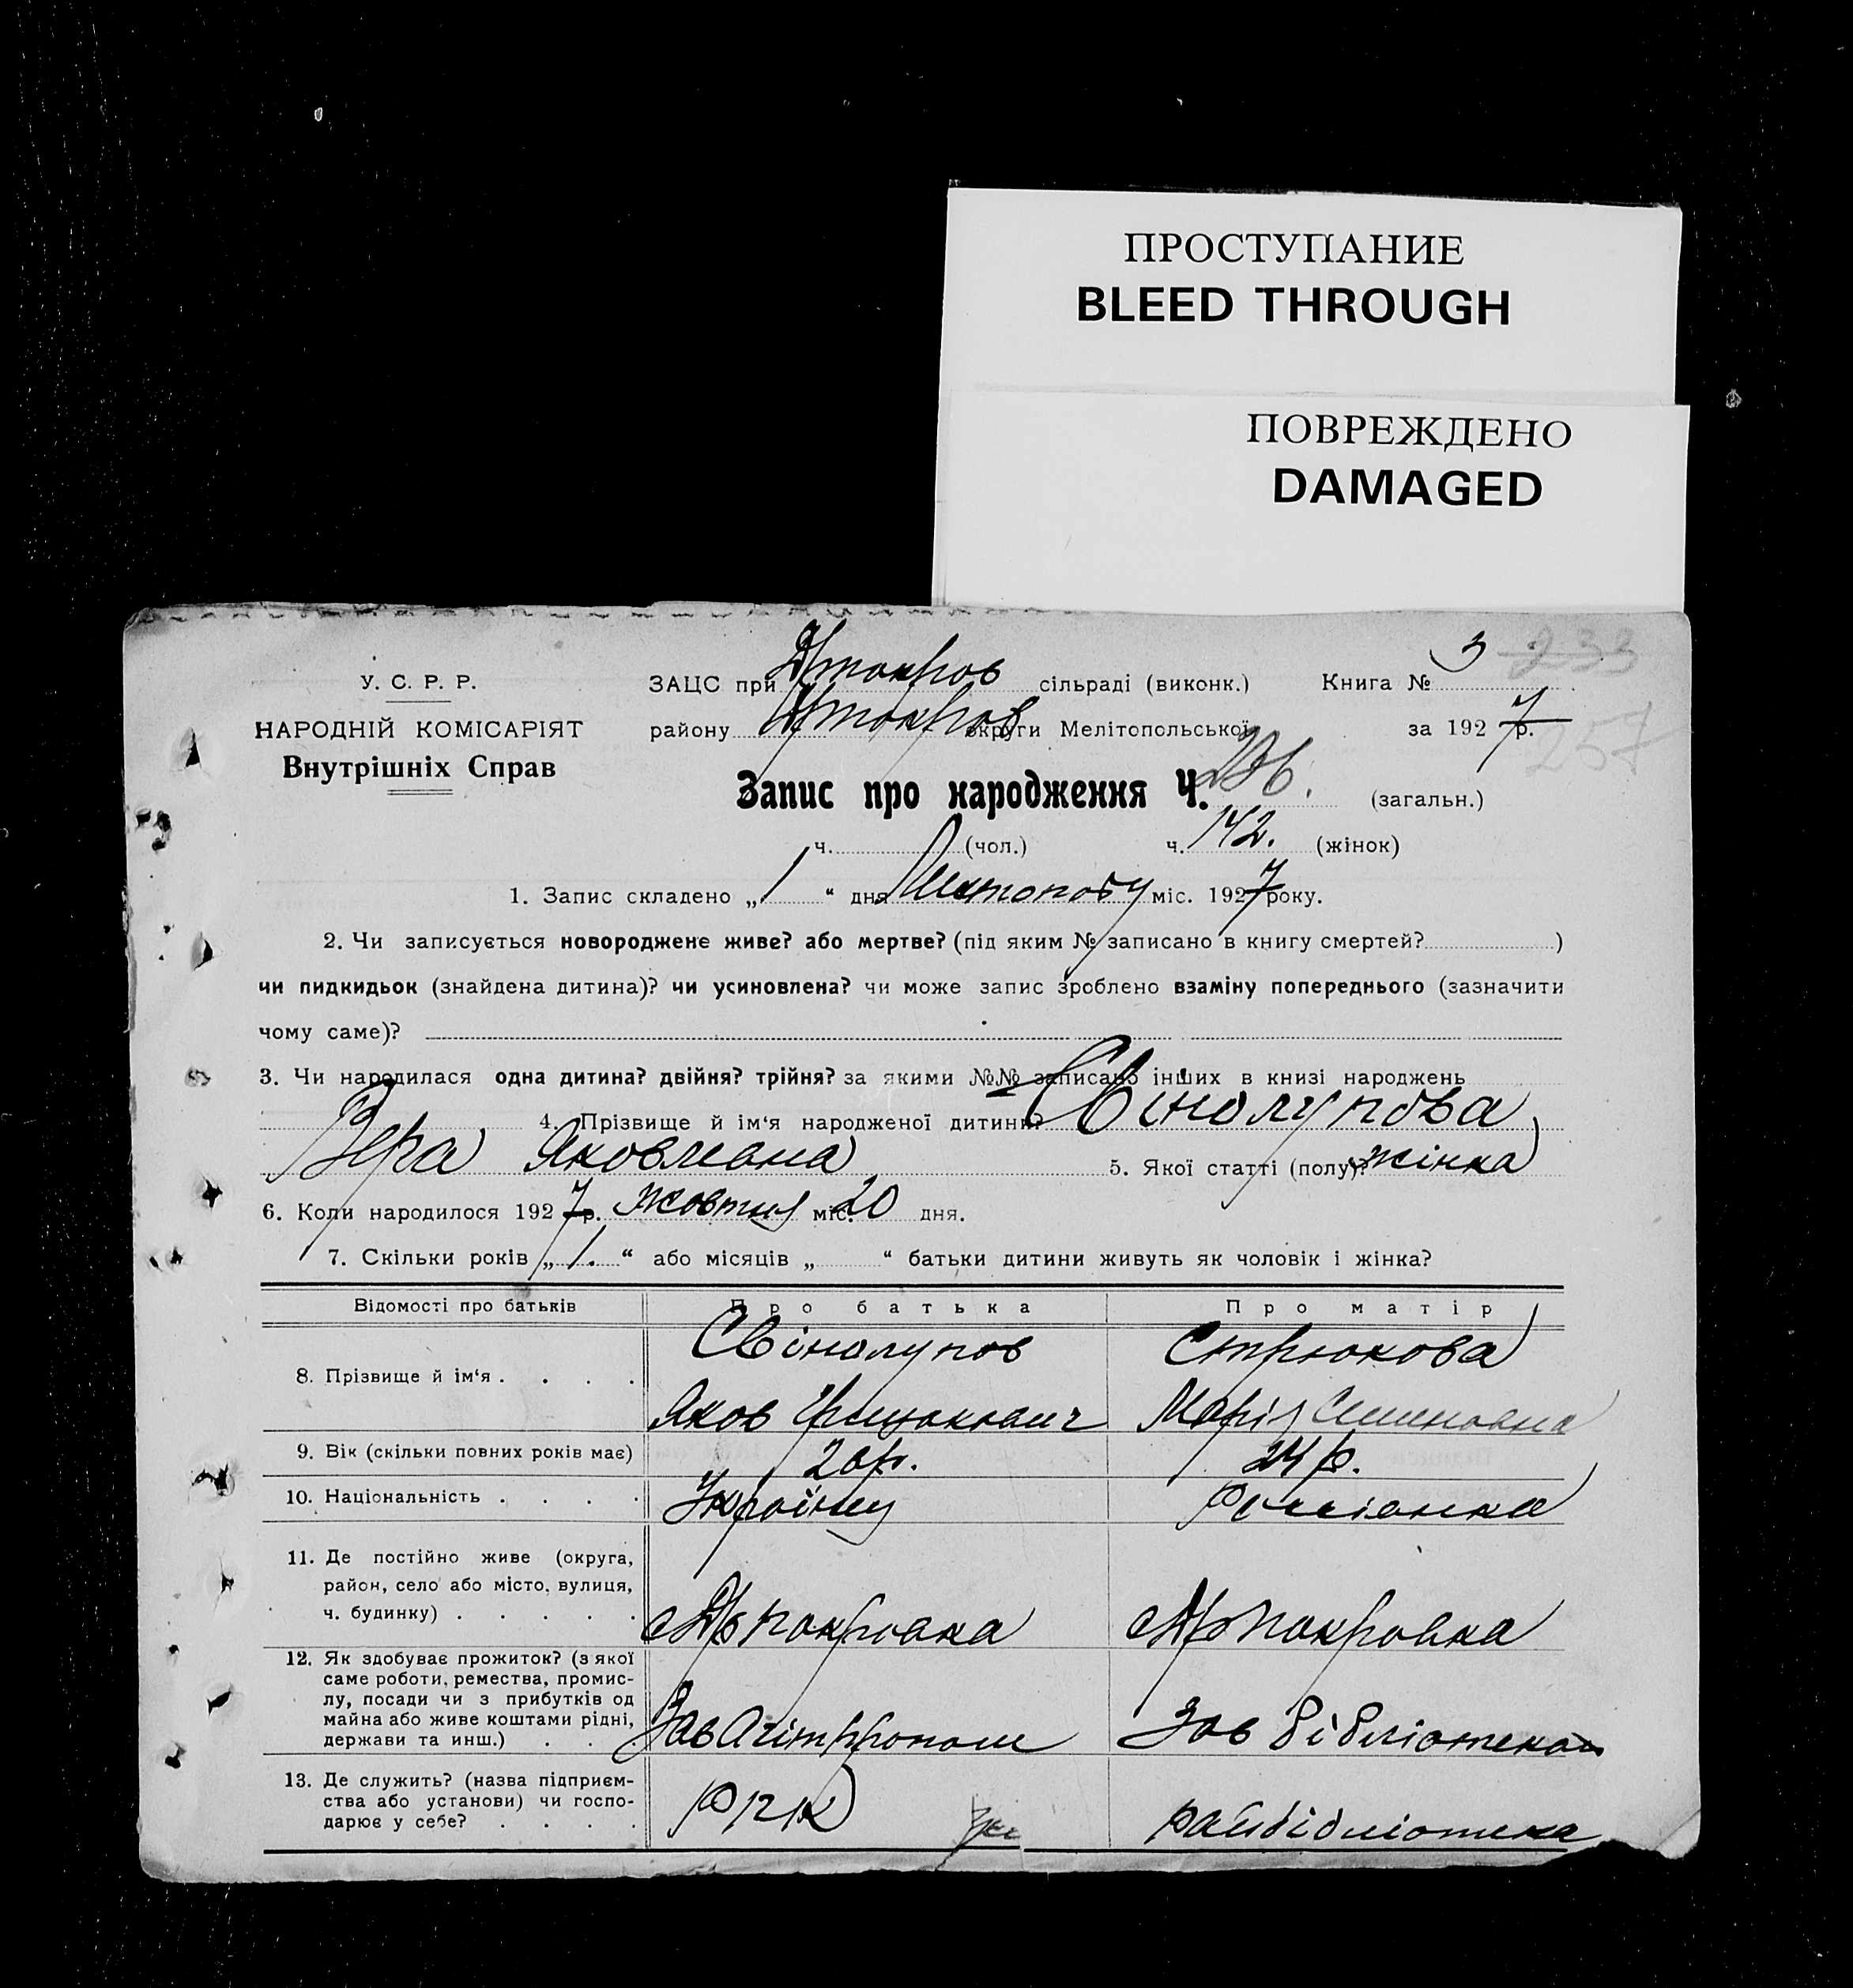 ПРОСТУПАНИЕ
BLEED THROUGH
ПОВРЕЖДЕНО
DAMAGED
3 233
У. С. Р. Р. ЗАЦС при сільраді (виконк.) Книга №
НАРОДНІЙ КОМІСАРІЯТ району округи Мелітопольської за 1927 р.
257
Внутрішніх Справ
Запис про народження Ч. (загальн.)
ч. (чол.) ч. 142. (жінок)
1. Запис складено „ 1 “ дня Листопаду міс. 1927 року.
2. Чи записується новороджене живе? або мертве? (під яким № записано в книгу смертей? )
чи пидкидьок (знайдена дитина)? чи усиновлена? чи може запис зроблено взаміну попереднього (зазначити
чому саме)?
3. Чи народилася одна дитина? двійня? трійня? за якими №№ записано інших в книзі народжень
4. Прізвище й ім‘я народженої дитини? Свінолупова
Вера Яковлевна 5. Якої статті (полу)? жінка
6. Коли народилося 1927 р. жовтня міс. 20 дня.
7. Скільки років „ 1. “ або місяців „ “ батьки дитини живуть як чоловік і жінка?
Відомості про батьків Про батька Про матір
8. Прізвище й ім‘я . . . . Свінолупов Стрюкова
Яков Марія
9. Вік (скільки повних років має) 24 р.
10. Національність . . . .
11. Де постійно живе (округа,
район, село або місто, вулиця,
ч. будинку) . . . . .
12. Як здобуває прожиток? (з якої
саме роботи, ремества, промис-
лу, посади чи з прибутків од
майна або живе коштами рідні,
держави та инш.) . . . Зав Зав бібліотекою
13. Де служить? (назва підприєм-
ства або установи) чи госпо-
дарює у себе? . . . . РПК райбібліотека